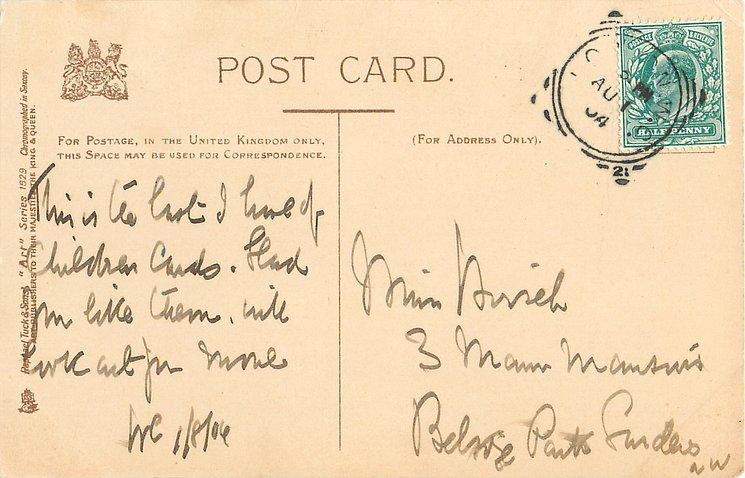 POST CARD.
FOR POSTAGE, IN THE UNITED KINGDOM ONLY,
THIS SPACE MAY BE USED FOR CORRESPONDENCE.
(FOR ADDRESS ONLY).
Raphael Tuck & Sons' "Art" Series 1829 Chromographed in Saxony.
ART PUBLISHERS TO THEIR MAJESTIES THE KING & QUEEN.
This is the last I have of
Children Cards. Glad
you like them. will
look out for more
1/8/04
Miss Hirsch
3 Mansions
Belsize Park Gardens
NW
POSTAGE REVENUE
HALFPENNY
LONDON N.W
AU 1
04
21